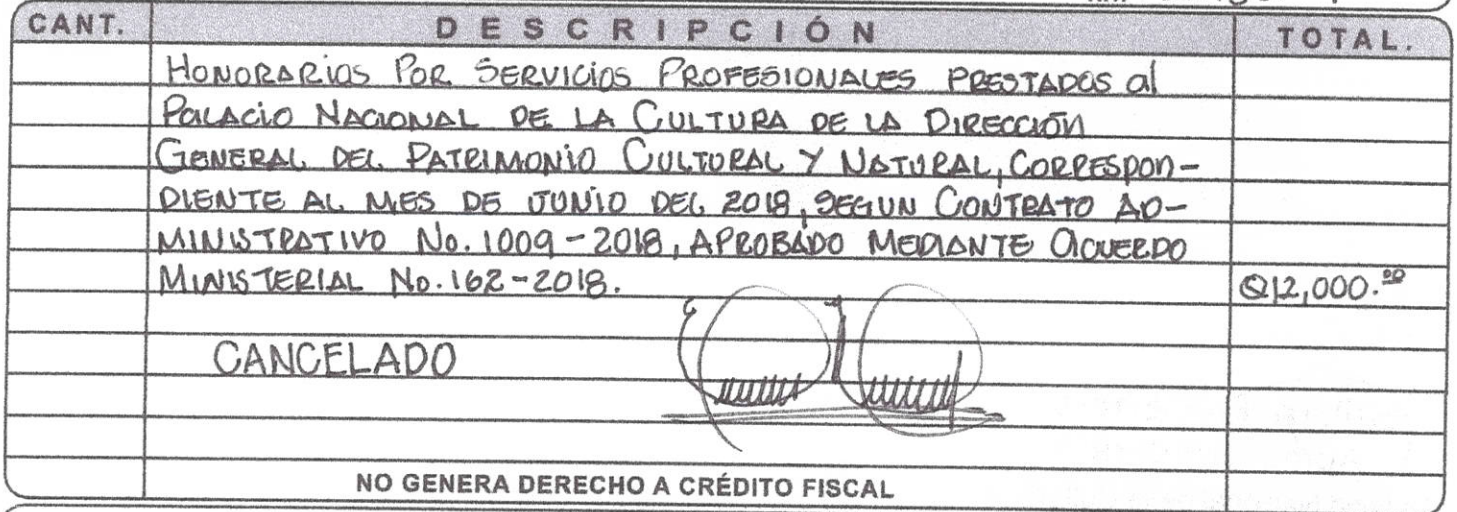 CANT. DESCRIPCIÓN TOTAL.
HONORARIOS POR SERVICIOS PROFESIONALES PRESTADOS al
PALACIO NACIONAL DE LA CULTURA DE LA DIRECCIÓN
GENERAL DEL PATRIMONIO CULTURAL Y NATURAL, CORRESPON-
DIENTE AL MES DE JUNIO DEL 2018, SEGUN CONTRATO AD-
MINISTRATIVO No. 1009-2018, APROBADO MEDIANTE ACUERDO
MINISTERIAL No. 162-2018. Q12,000.00
CANCELADO
NO GENERA DERECHO A CRÉDITO FISCAL